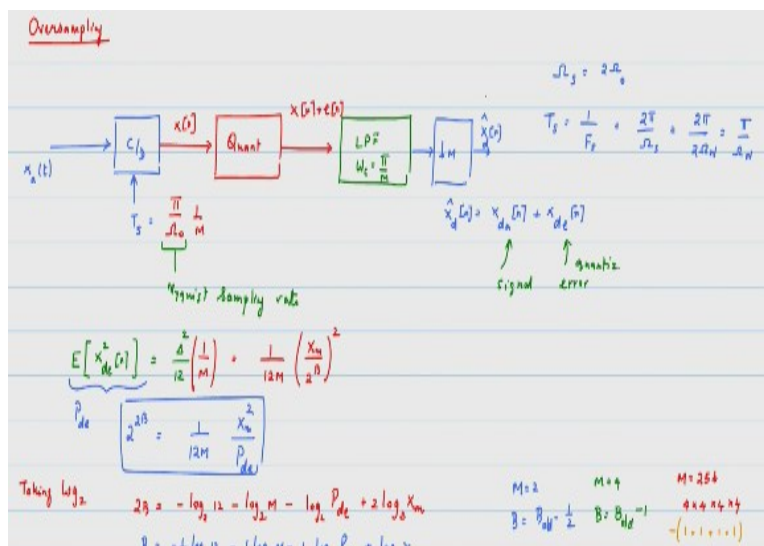 Oversampling
Ω_s = 2Ω_0
x_a(t)
C/D
x[n]
Quant
x[n]+e[n]
LPF
ω_c = π/M
↓M
x̂_d[n]
T_s = 1/F_s = 2π/Ω_s = 2π/2Ω_N = π/Ω_N
T_s = π/Ω_0 1/M
Nyquist Sampling rate
x̂_d[n] = x_da[n] + x_de[n]
signal
quantiz error
E[x²_de[n]] = Δ²/12 (1/M) = 1/12M (X_m/2^B)²
P_de
2^2B = 1/12M X_m²/P_de
Taking log_2
2B = -log_2 12 - log_2 M - log_2 P_de + 2 log_2 X_m
M=2
B = B_old - 1/2
M=4
B = B_old - 1
M=256
4×4×4×4
-(1+1+1+1)